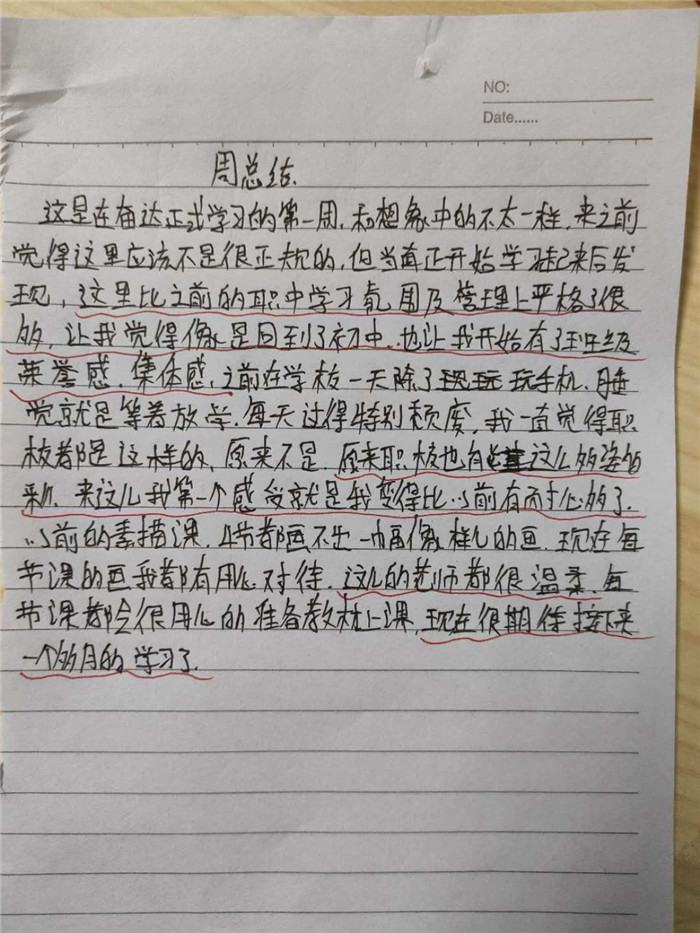 NO:
Date......
周总结.
这是在奋达正式学习的第一周,和想象中的不太一样,来之前
觉得这里应该不是很正规的,但当真正开始学习起来后发
现,这里比之前的职中学习氛围及管理上严格了很
多,让我觉得像是回到了初中,也让我开始有了班级
荣誉感,集体感,之前在学校一天除了玩手机,睡
觉就是等着放学,每天过得特别颓废,我一直觉得职
校都是这样的,原来不是,原来职校也有这么多姿多
彩,来这儿我第一个感受就是我变得比以前有耐心多了.
以前的素描课,4节都画不出一幅像样儿的画,现在每
节课的画我都有用心对待,这儿的老师都很温柔,每
节课都会很用心的准备教材上课,现在很期待接下来
一个多月的学习了.